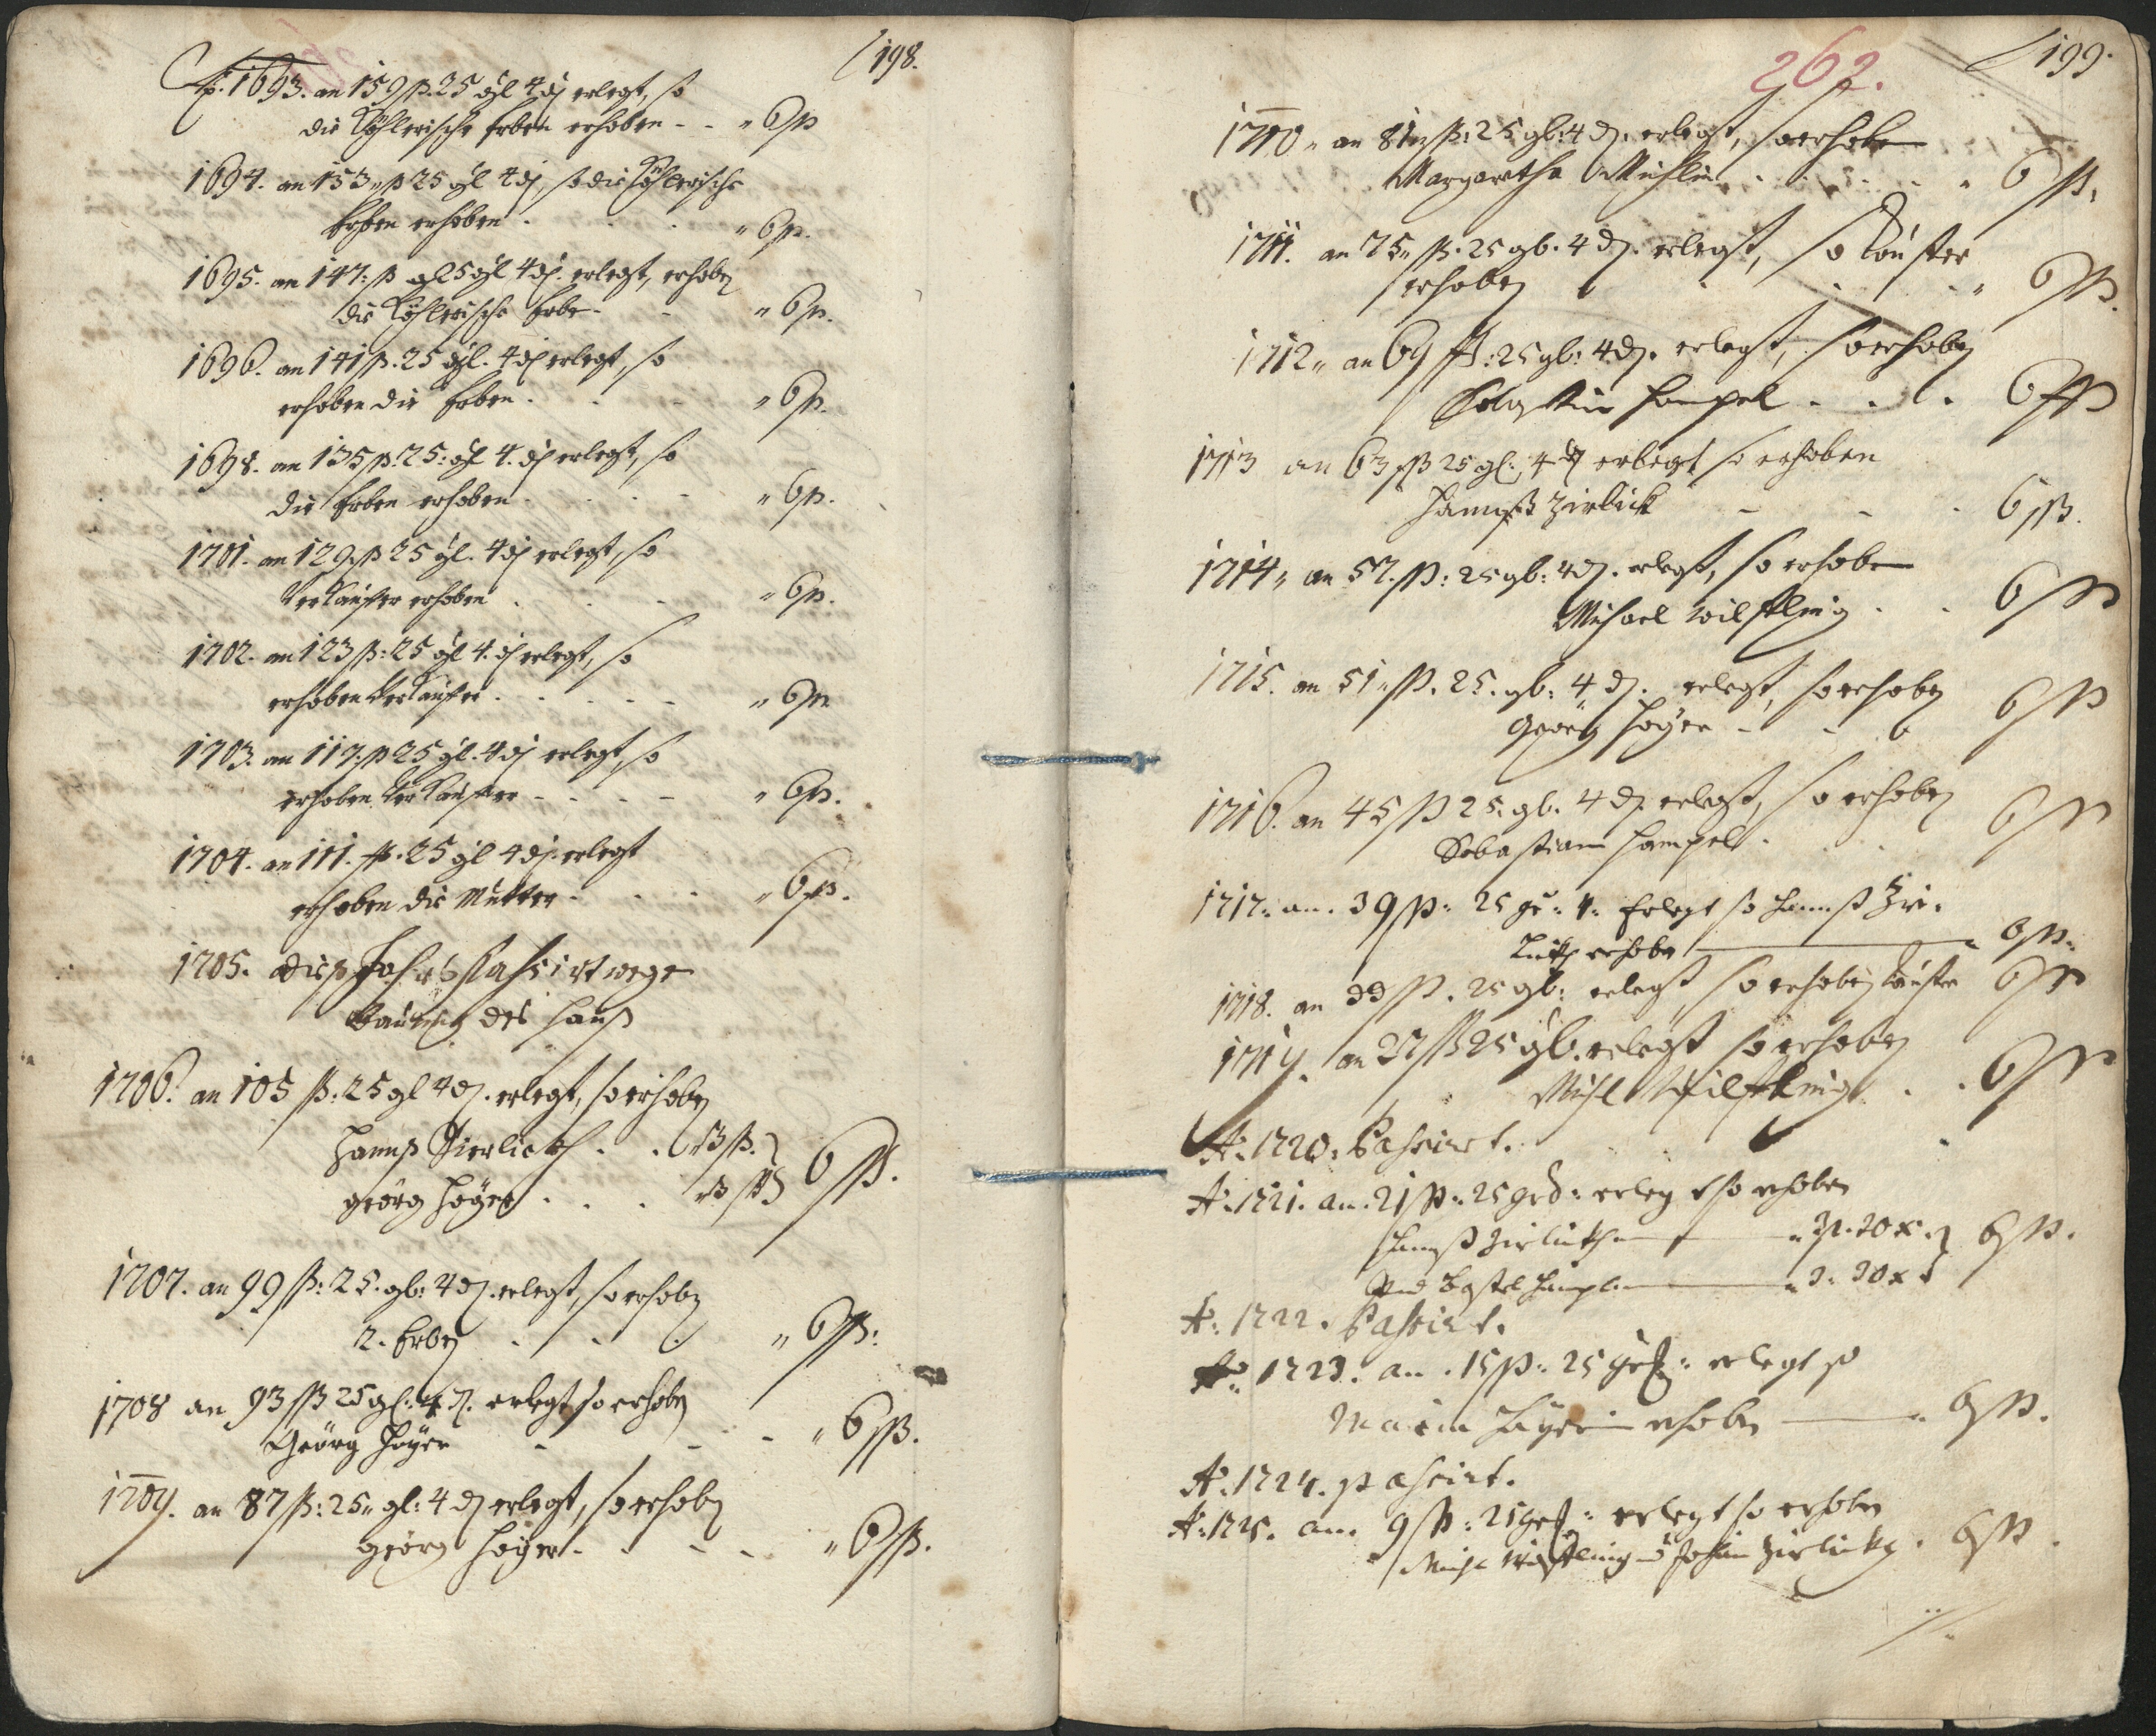 198.
Ao. 1693. an 159 ß. 25 gl 4 d erlegt, so
die Köhlerische Erben erhoben - - " 6 ß
1694. an 153 " ß 25 gl 4 d, so die Köhlerische
Erben erhoben . . . " 6 ß.
1695. an 147: ß gl 5 gl 4 d. erlegt, erhoben
die Köhlerische Erben - - " 6 ß.
1696. an 141 ß. 25 gl. 4 d erlegt, so
erhoben die Erben . . - " 6 ß.
1698. an 135 ß. 25: gl 4. d erlegt, so
die Erben erhoben . . . - " 6 ß.
1701. an 129. ß 25 gl. 4 d erlegt, so
Verkauffer erhoben . . - " 6 ß.
1702. an 123 ß: 25 gl 4. d erlegt, so
erhoben Verkauffer . . . - - " 6 ß
1703. an 117: ß 25 gl. 4 d erlegt, so
erhoben Verkauffer - - - - " 6 ß.
1704. an 111. ß. 25 gl 4 d. erlegt
erhoben die Mutter . . . " 6 ß.
1705. dieß Jahr Passirt wege
des Hauß
1706. an 105 ß: 25 gl 4 d. erlegt, so erhoben
Hannß Zierlickh . . " 3 ß.
Georg Hoÿer . . . " 3 ß 6 ß.
1707. an 99 ß: 25. gl: 4 d. erlegt, so erhoben
2. Erben . . . " 6 ß:
1708 an 93 ß 25 gl: 4 d. erlegt so erhoben
Georg Hoÿer - - - " 6 ß.
1709. an 87 ß: 25 " gl: 4 d erlegt, so erhoben
Georg Hoÿer - - - - " 6 ß.
262.
199.
1710 " an 81 " ß: 25 gl: 4 d. erlegt, so erhoben
Margaretha . . . . . " 6 ß.
1711. an 75 " ß. 25 gl. 4 d. erlegt, so Kauffer
erhoben . . . " 6 ß.
1712 " an 69 ß: 25 gl: 4 d. erlegt, so erhoben
Hampel . . . 6 ß
1713 an 63 ß 25 gl: 4 d erlegt so erhoben
Hannß Zirlick - - - 6 ß.
1714 " an 57. ß: 25 gl: 4 d. erlegt, so erhoben
Michael Wilfling . . 6 ß
1715. an 51 " ß. 25. gl: 4 d. erlegt, so erhoben
Georg Hoÿer - - 6 ß
1716. an 45 ß 25. gl. 4 d. erlegt, so erhoben
Sebastian Hampel . . . 6 ß
1717: an. 39 ß: 25 gr: 4: Erlegt so Hannß Zir-
lickh erhoben 6 ß:
1718. an 33 ß. 25 gl: erlegt so erhoben Kauffer 6 ß
1719. an 27 ß 25 gl. erlegt so erhoben
Michl Wilfling . . 6 ß
Ao: 1720: Passirt.
Ao: 1721. an. 21 ß: 25 gr d: erlegt so erhoben
Hannß Zirlickh " 3 ß. 20 x.
Vnd Bastel Hampl " 3: 30 x 6 ß.
Ao: 1722. Passirt.
Ao: 1723. an. 15 ß: 25 gr: erlegt so
Maria Haÿerin erhoben 6 ß.
Ao: 1724. passirt.
Ao: 1725. an. 9 ß: 25 gr: erlegt so erhoben
Michl Wilfling Zirlickh . 6 ß.